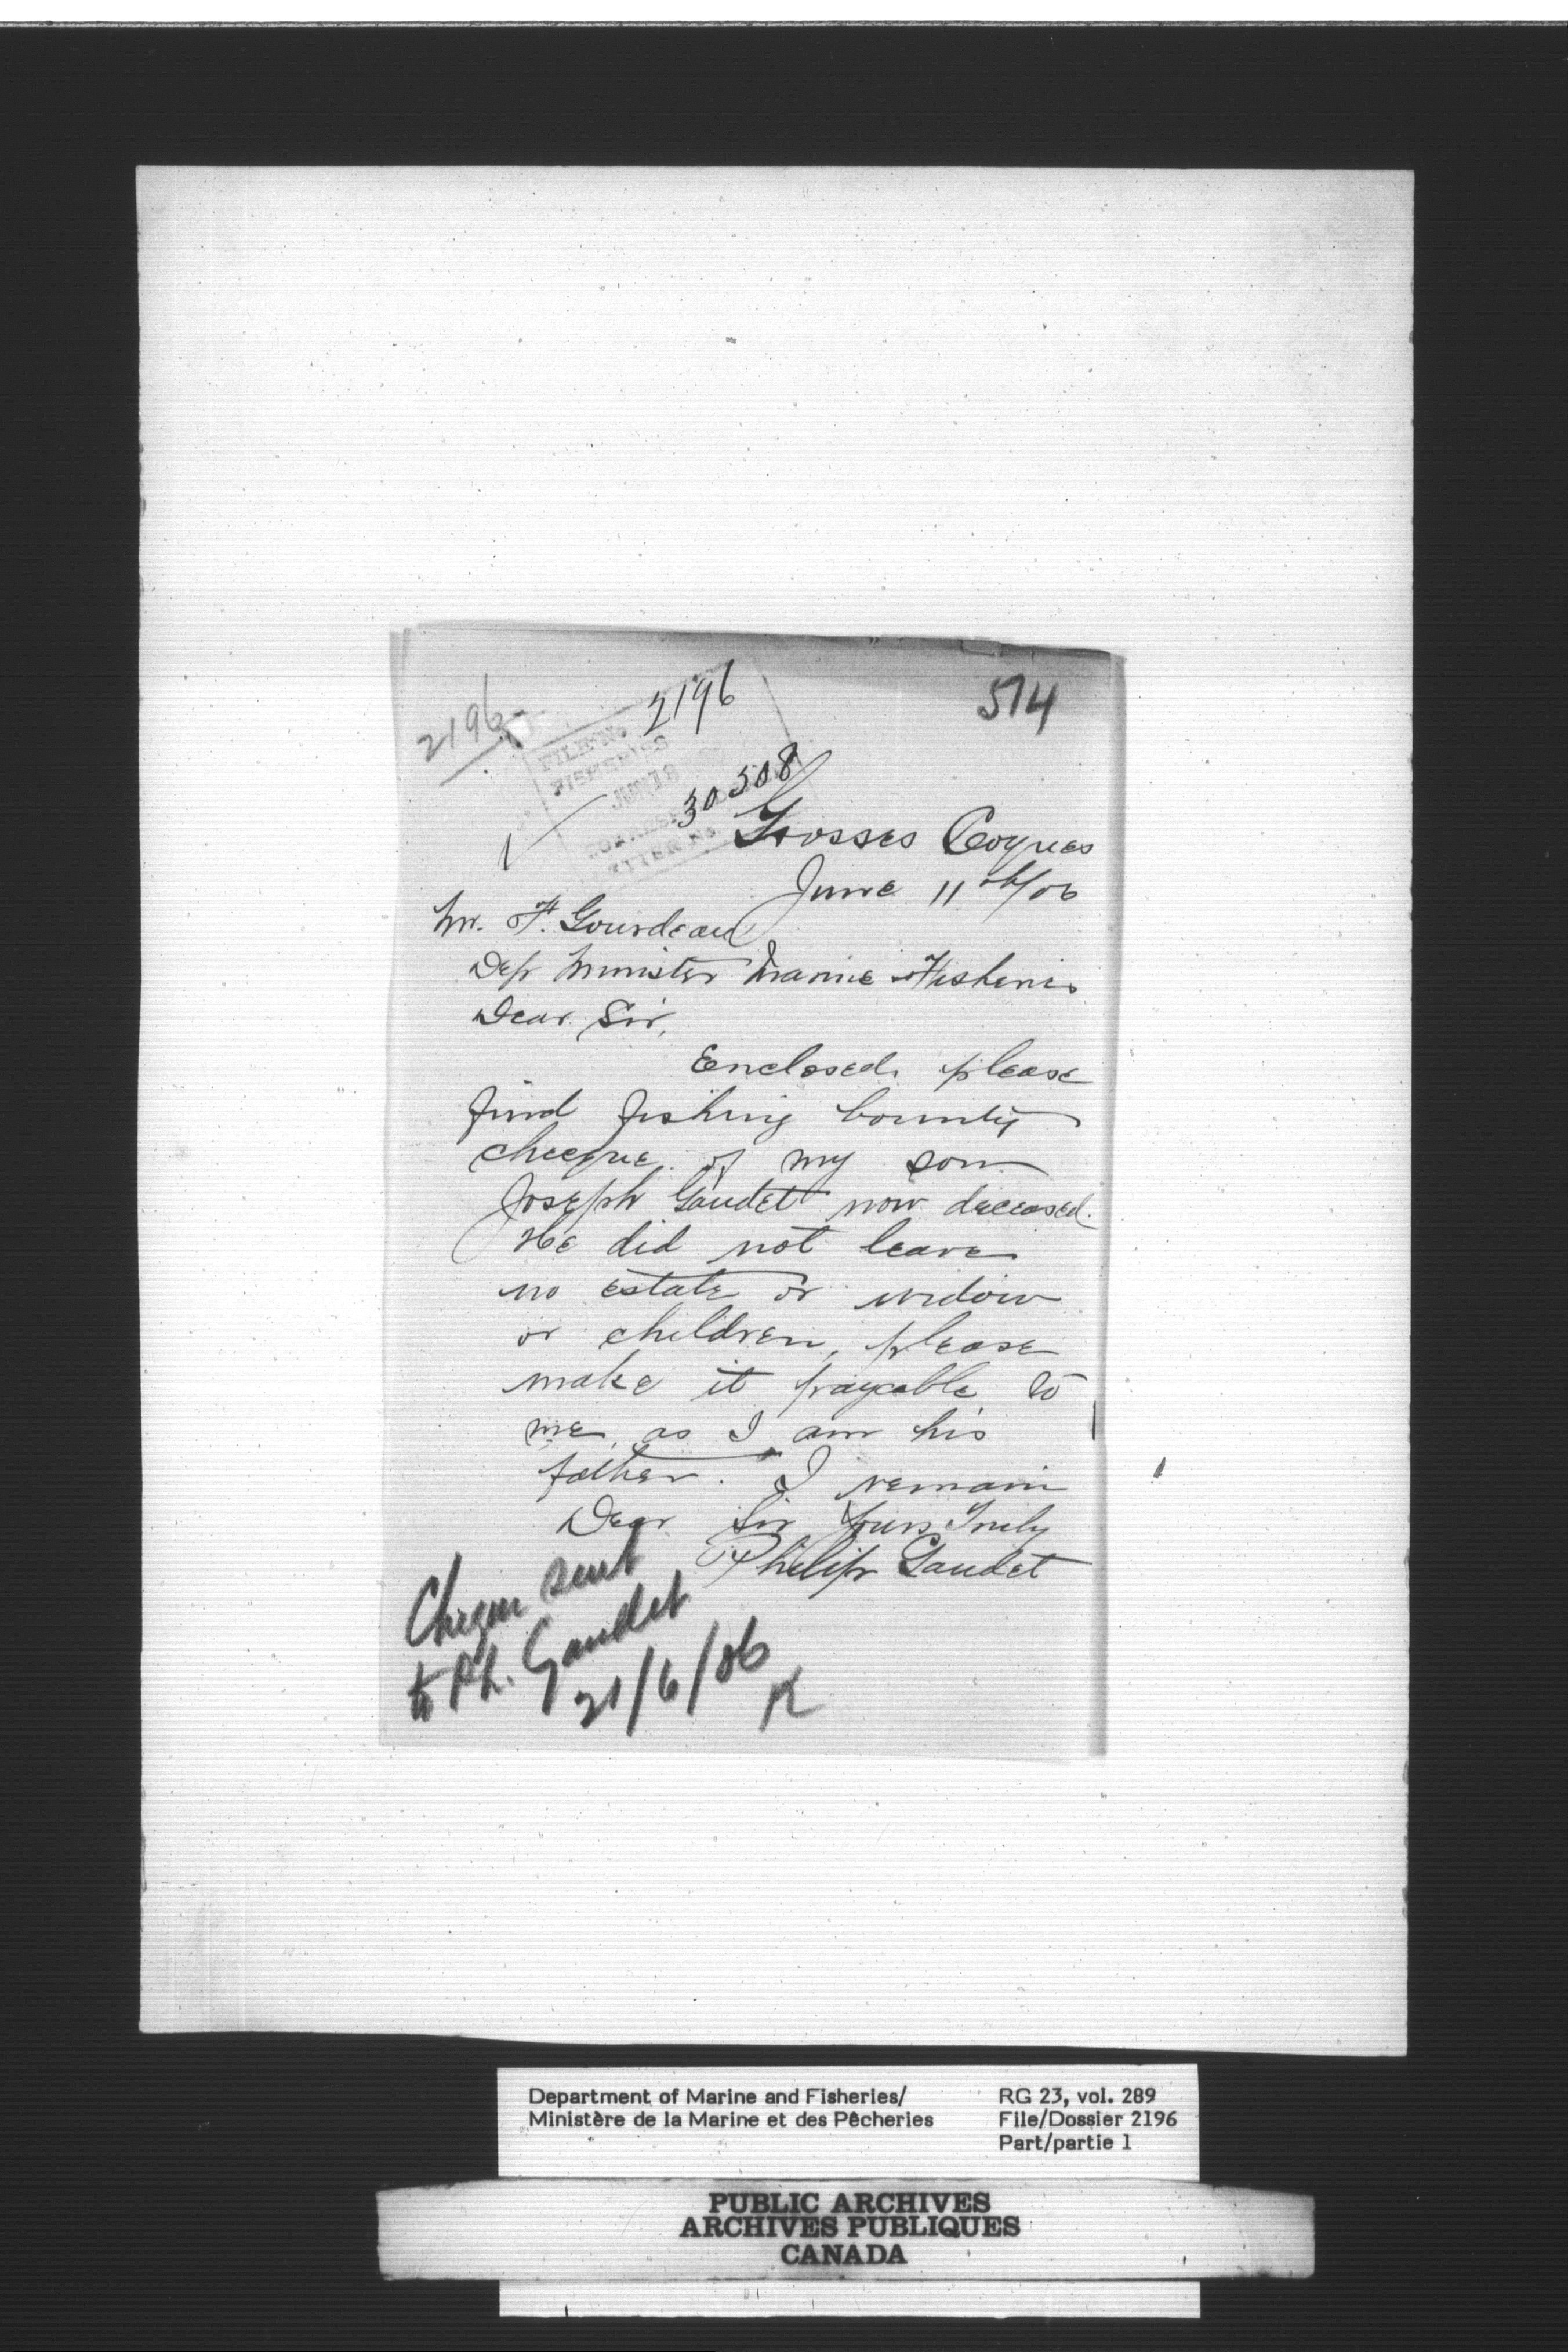 2196
2196
514
FILE No.
FISHERIES
JUN 18
30508
Grosses Coques
June 11th/06
Mr. F. Gourdeau
Dep Minister Marine Fisheries
Dear Sir,
Enclosed please
find fishing bounty
checque of my son
Joseph Gaudet now deceased.
He did not leave
no estate or widow
or children, please
make it payable to
me, as I am his
father. I remain
Dear Sir Yours Truly
Philip Gaudet
Cheque sent
to Ph. Gaudet
21/6/06
K
Department of Marine and Fisheries/
Ministère de la Marine et des Pêcheries
RG 23, vol. 289
File/Dossier 2196
Part/partie 1
PUBLIC ARCHIVES
ARCHIVES PUBLIQUES
CANADA